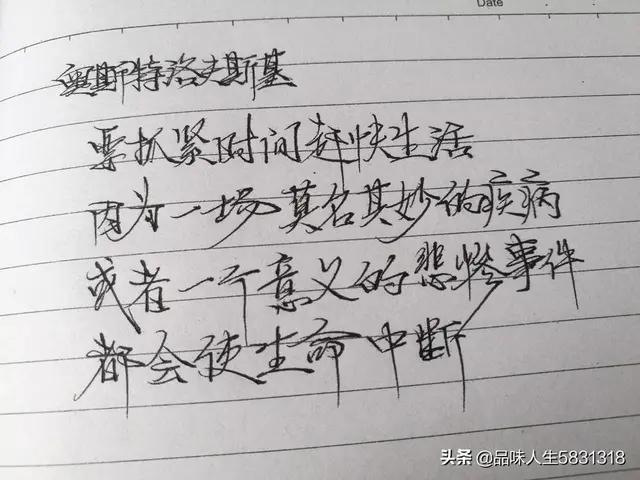 Date
奥斯特洛夫斯基
要抓紧时间赶快生活
因为一场莫名其妙的疾病
或者一个意义的悲惨事件
都会使生命中断
头条 @品味人生5831318